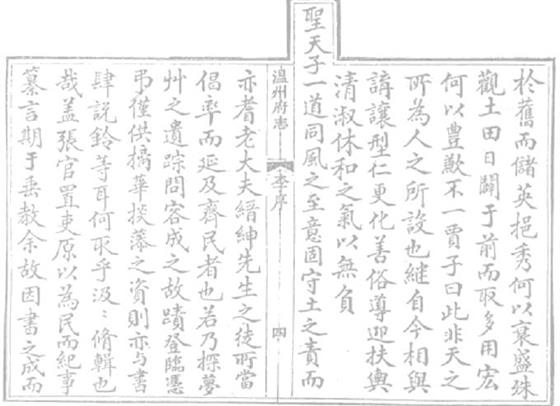 於舊而儲英挹秀何以衰盛殊
觀土田日闢于前而取多用宏
何以豊歉不一賈子曰此非天之
所為人之所設也繼自今相與
講讓型仁更化善俗導迎扶輿
清淑休和之氣以無負
聖天子一道同風之至意固守土之責而
溫州府志
李序
四
亦耆老大夫縉紳先生之徒所當
倡率而延及齊民者也若乃探夢
艸之遺踪問容成之故蹟登臨憑
弔僅供摛華掞藻之資則亦与書
肆說鈴等耳何取乎汲〻脩輯也
哉盖張官置吏原以為民而紀事
纂言期于垂教余故因書之成而